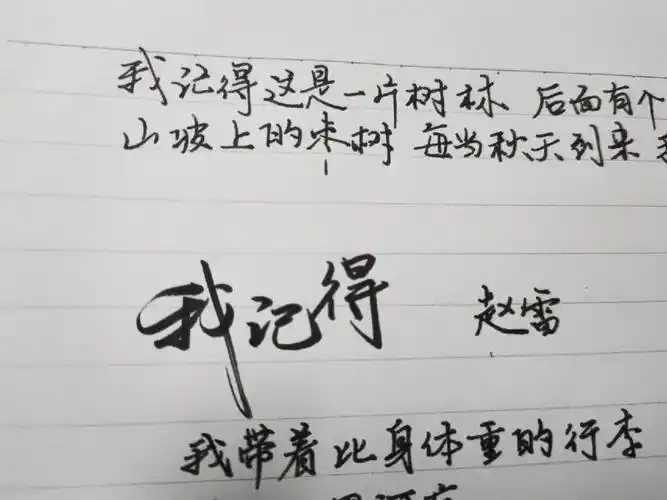 我记得这是一片树林、后面有个
山坡上的枣树 每当秋天到来
我记得 赵雷
我带着比身体重的行李